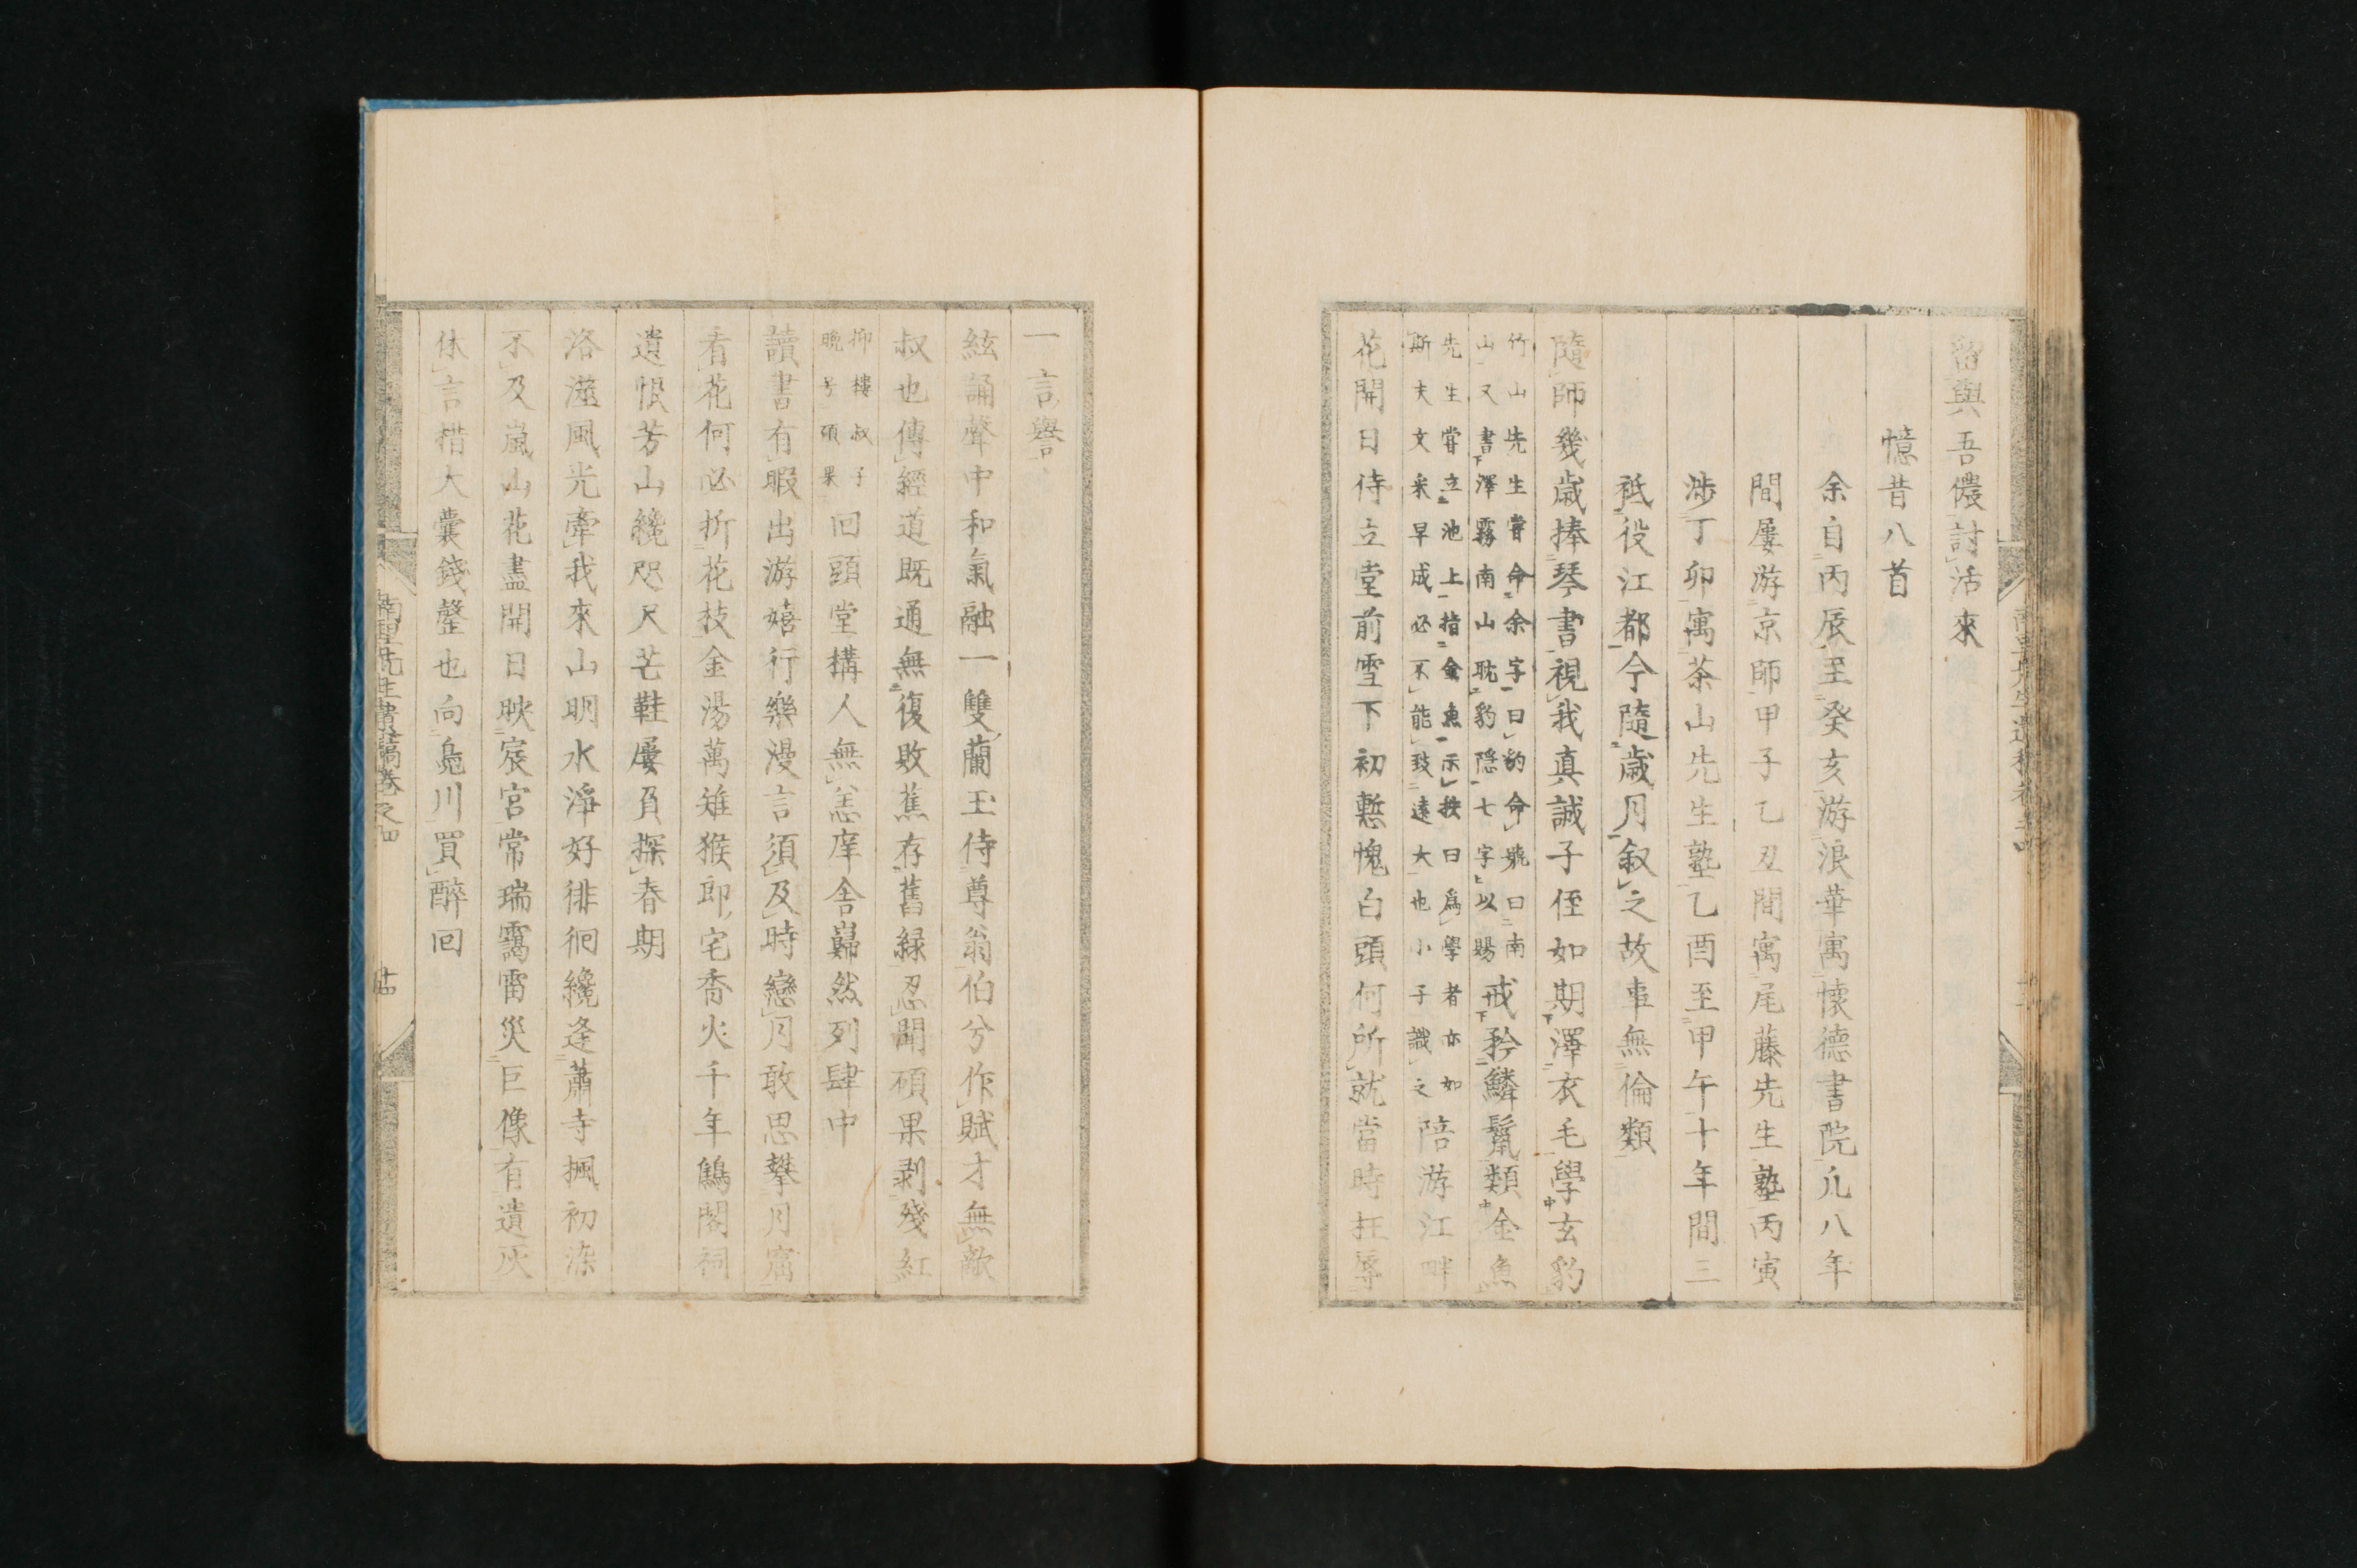 留與吾儂討活來
憶昔八首
余自丙辰至癸亥游浪華寓懷德書院凡八年
間屢游京師甲子乙丑間寓尾藤先生塾丙寅
渉丁卯寓茶山先生塾乙酉至甲午十年間三
祗役江都今隨歳月叙之故事無倫類
隨師幾歳捧琴書視我真誠子侄如期澤衣毛學玄豹
竹山先生嘗命余字曰豹命號曰南
山又書澤霧南山耽豹隠七字以賜
戒矜鱗鬣類金魚
先生嘗立池上指金魚示輗曰為學者亦如
斯夫文采早成必不能致遠大也小子識之
陪游江畔
花開日侍立堂前雪下初慙愧白頭何所就當時枉辱
一言譽
絃誦聲中和氣融一雙蘭玉侍尊翁伯兮作賦才無敵
叔也傳經道既通無復敗蕉存舊緑忍聞碩果剥殘紅
抑樓叔子
晩号碩果
回頭堂構人無恙庠舎巋然列肆中
讀書有暇出游嬉行樂漫言須及時戀月敢思攀月窟
看花何必折花枝金湯萬雉猴郎宅香火千年鷦閣祠
遺恨芳山纔咫尺芒鞋屢負探春期
洛澨風光牽我來山明水淨好徘徊纔逢蕭寺楓初染
不及嵐山花盡開日映宸宮常瑞靄雷災巨像有遺灰
休言措大嚢錢罄也向鳧川買醉回
南里先生遺稿巻之四
十四